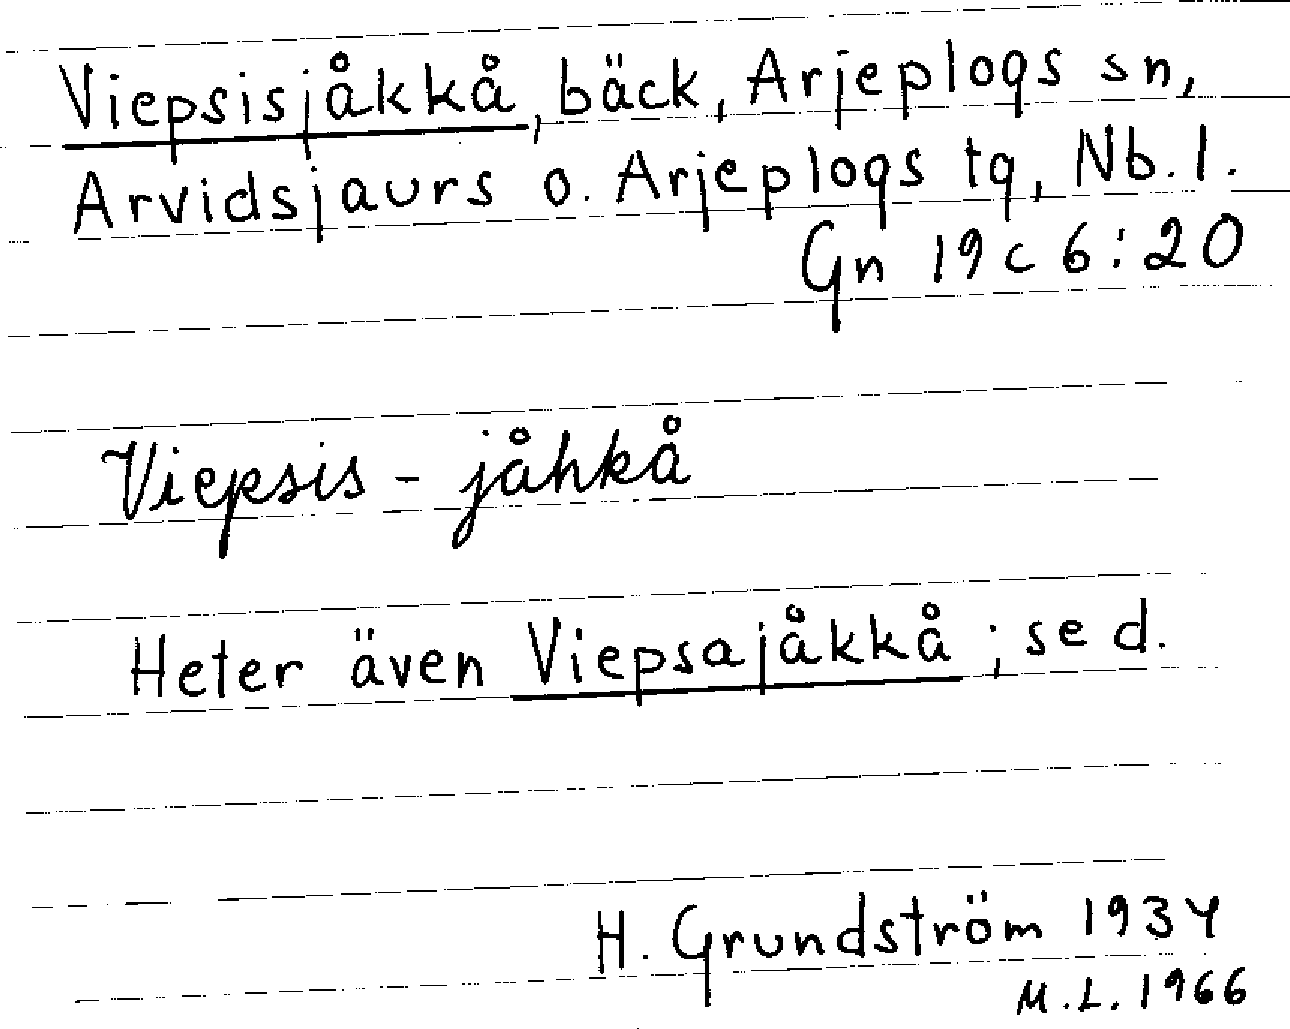 Viepsisjåkkå, bäck, Arjeplogs sn,
Arvidsjaurs o. Arjeplogs tg, Nb. l.
Gn 19 c 6:20
Viepsis - jåhkå
Heter även Viepsajåkkå ; se d.
H. Grundström 1934
M.L. 1966